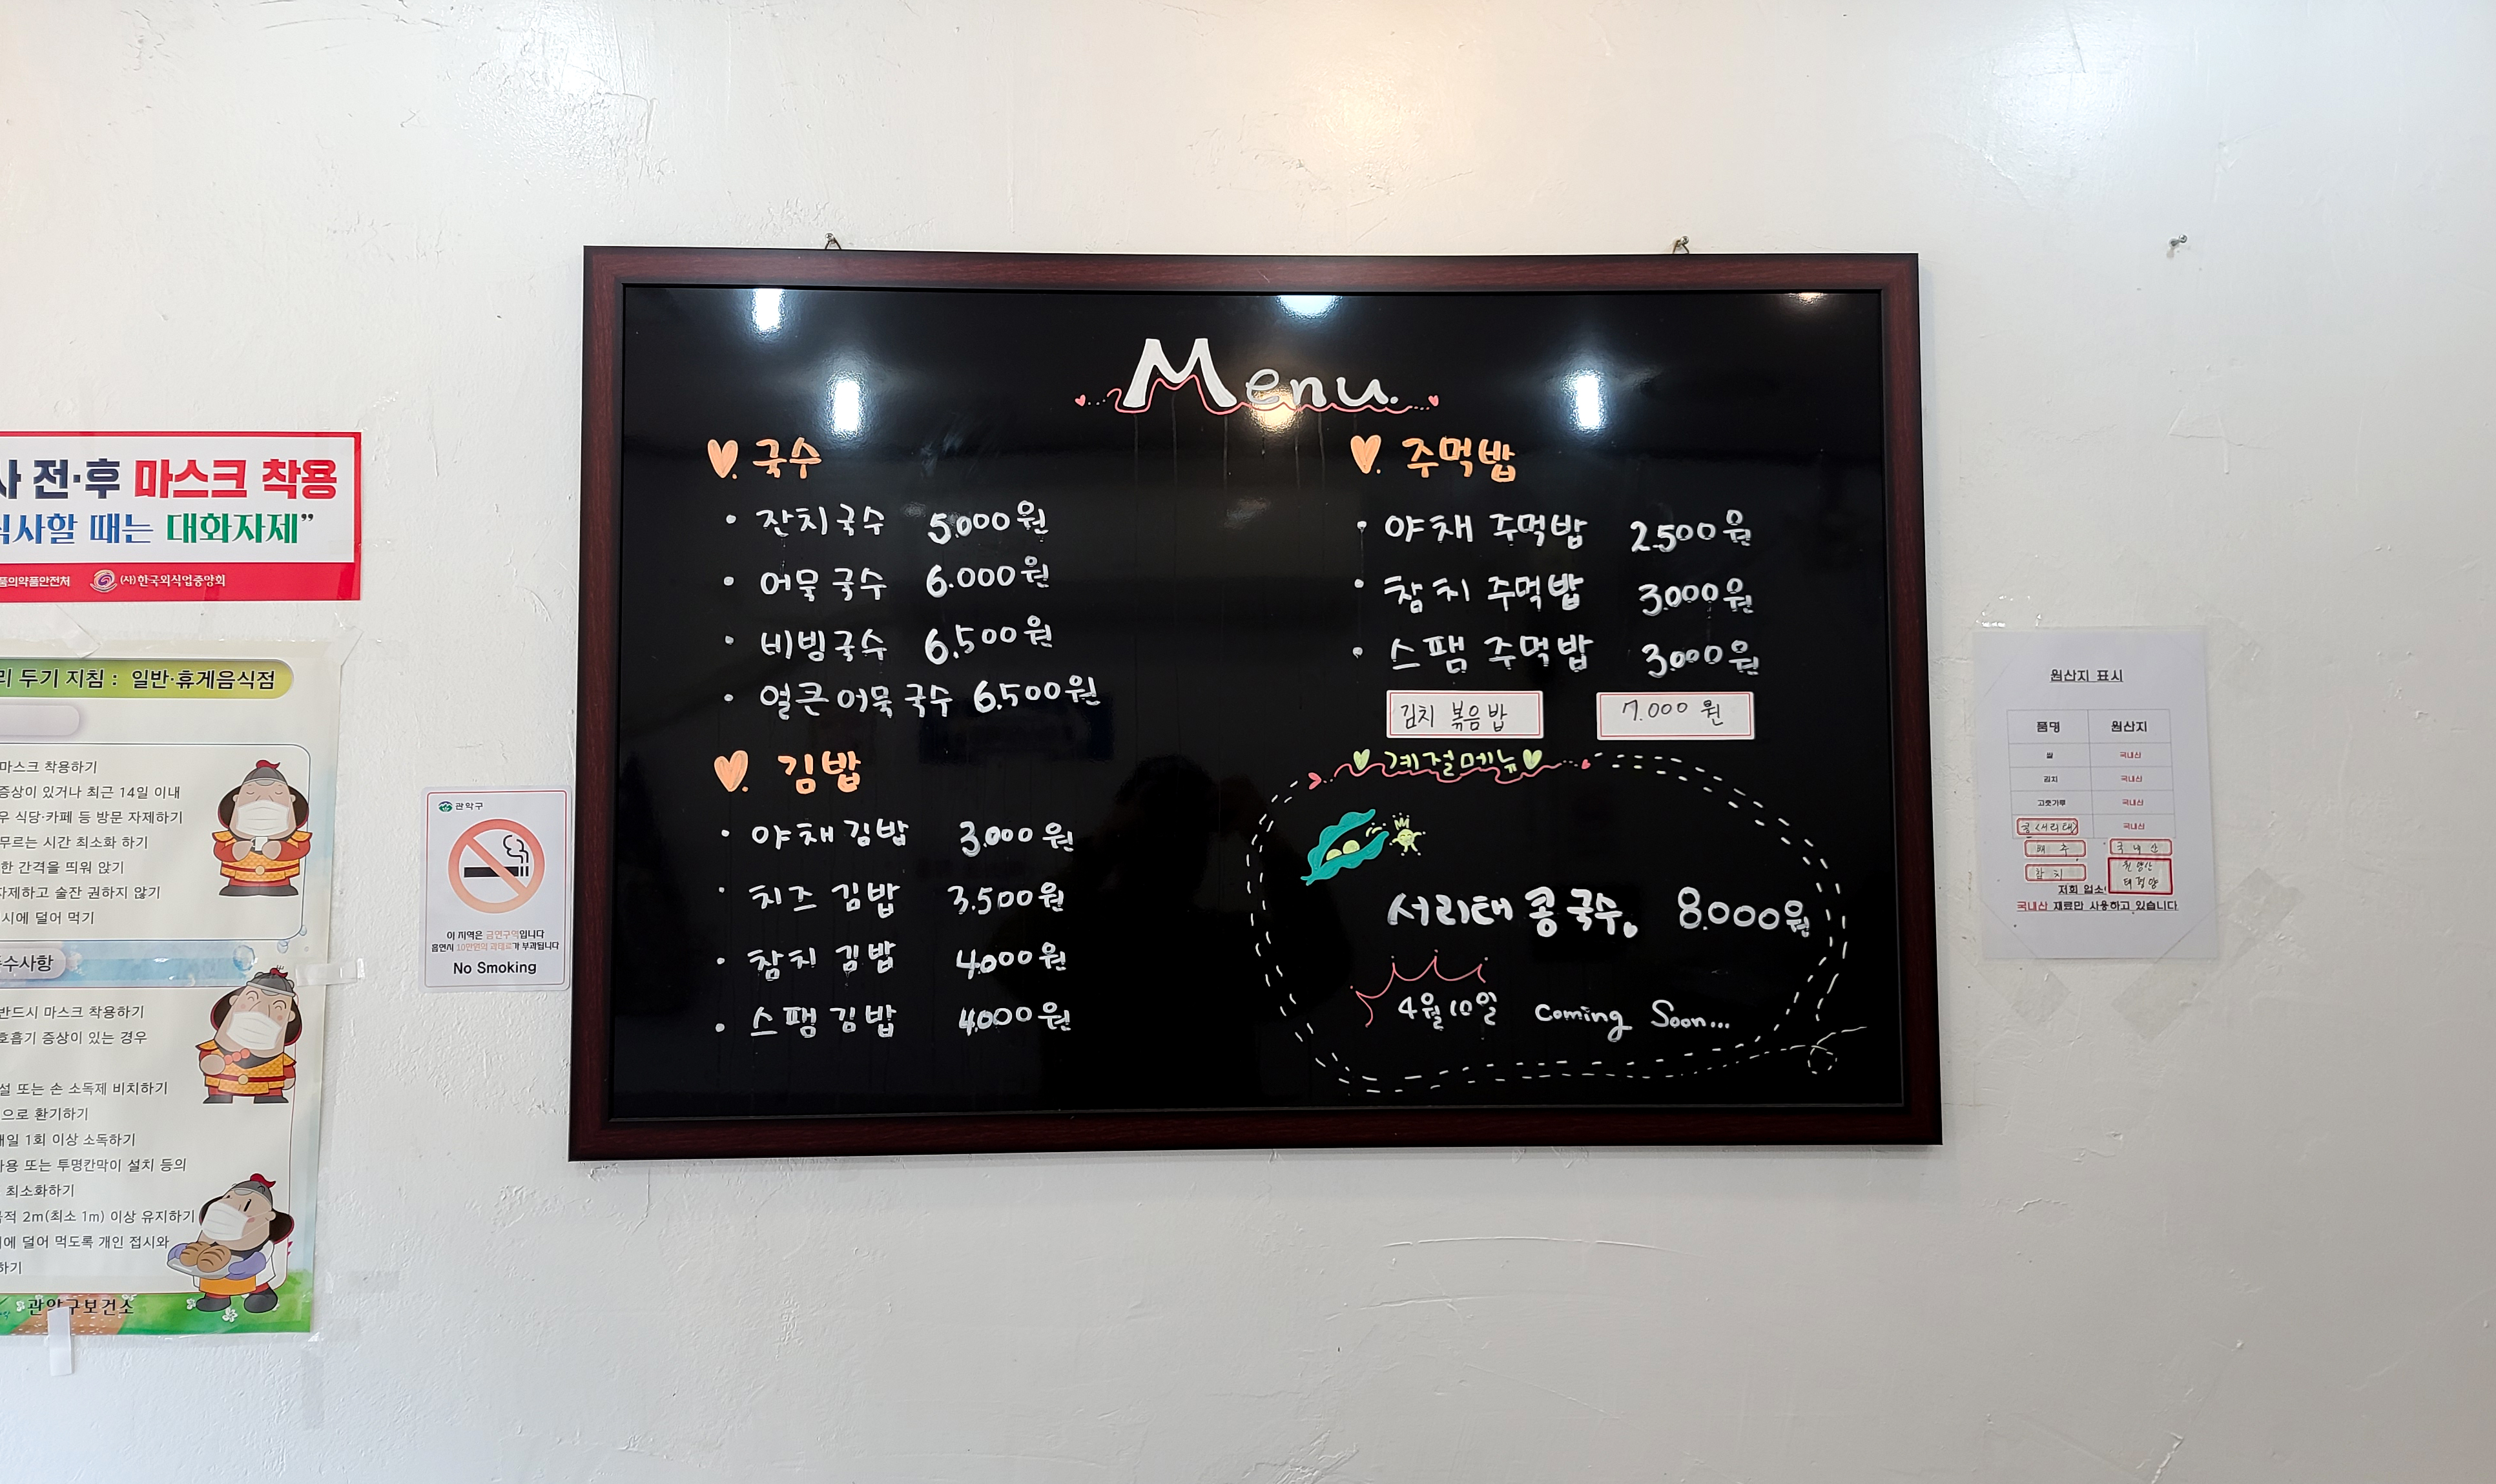 사 전·후 마스크 착용
식사할 때는 대화자제”
품의약품안전처 (사)한국외식업중앙회
리 두기 지침 : 일반·휴게음식점
마스크 착용하기
증상이 있거나 최근 14일 이내
우 식당·카페 등 방문 자제하기
무르는 시간 최소화 하기
한 간격을 띄워 앉기
자제하고 술잔 권하지 않기
시에 덜어 먹기
수사항
반드시 마스크 착용하기
호흡기 증상이 있는 경우
설 또는 손 소독제 비치하기
으로 환기하기
매일 1회 이상 소독하기
사용 또는 투명칸막이 설치 등의
최소화하기
적 2m(최소 1m) 이상 유지하기
에 덜어 먹도록 개인 접시와
하기
관악구보건소
관악구
이 지역은 금연구역입니다
흡연시 10만원의 과태료가 부과됩니다
No Smoking
Menu.
국수
잔치국수 5.000원
어묵국수 6.000원
비빔국수 6.500원
얼큰어묵국수 6.500원
김밥
야채김밥 3.000원
치즈김밥 3.500원
참치김밥 4.000원
스팸김밥 4.000원
주먹밥
야채 주먹밥 2.500원
참치 주먹밥 3.000원
스팸 주먹밥 3.000원
김치 볶음밥 7.000원
계절메뉴
서리태 콩국수. 8.000원
4월 10일 Coming Soon...
원산지 표시
품명 원산지
쌀 국내산
김치 국내산
고춧가루 국내산
콩(서리태) 국내산
배추 국내산
참치 원양산
태평양
저희 업소
국내산 재료만 사용하고 있습니다